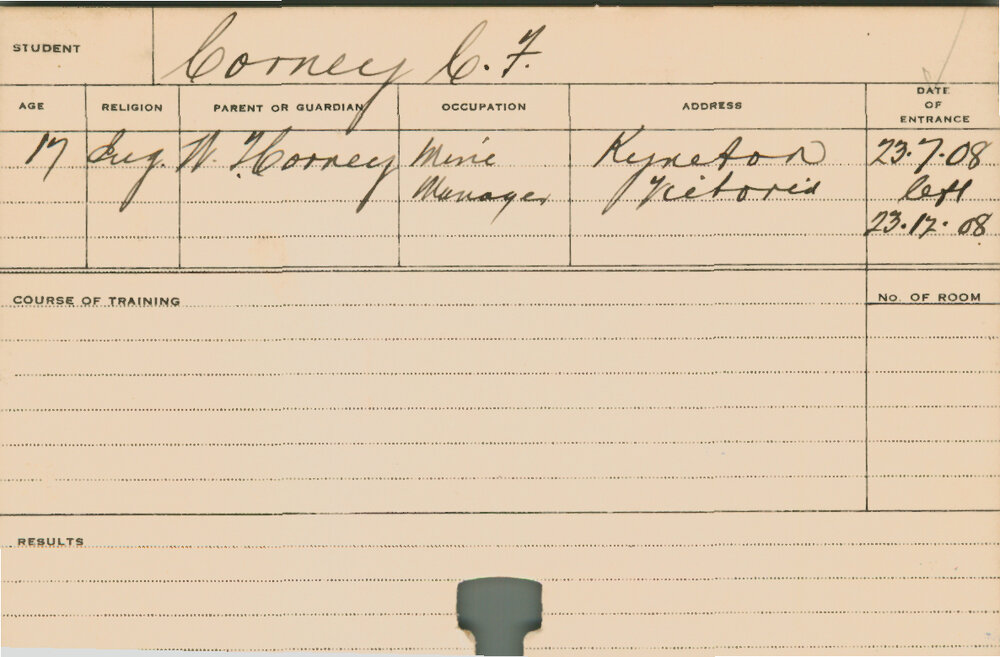 STUDENT Corney C. F.
AGE RELIGION PARENT OR GUARDIAN OCCUPATION ADDRESS DATE OF ENTRANCE
17 Eng. W. F. Corney Mine Kyneton 23.7.08
Manager Victoria left
23.12.08
COURSE OF TRAINING No. OF ROOM
RESULTS